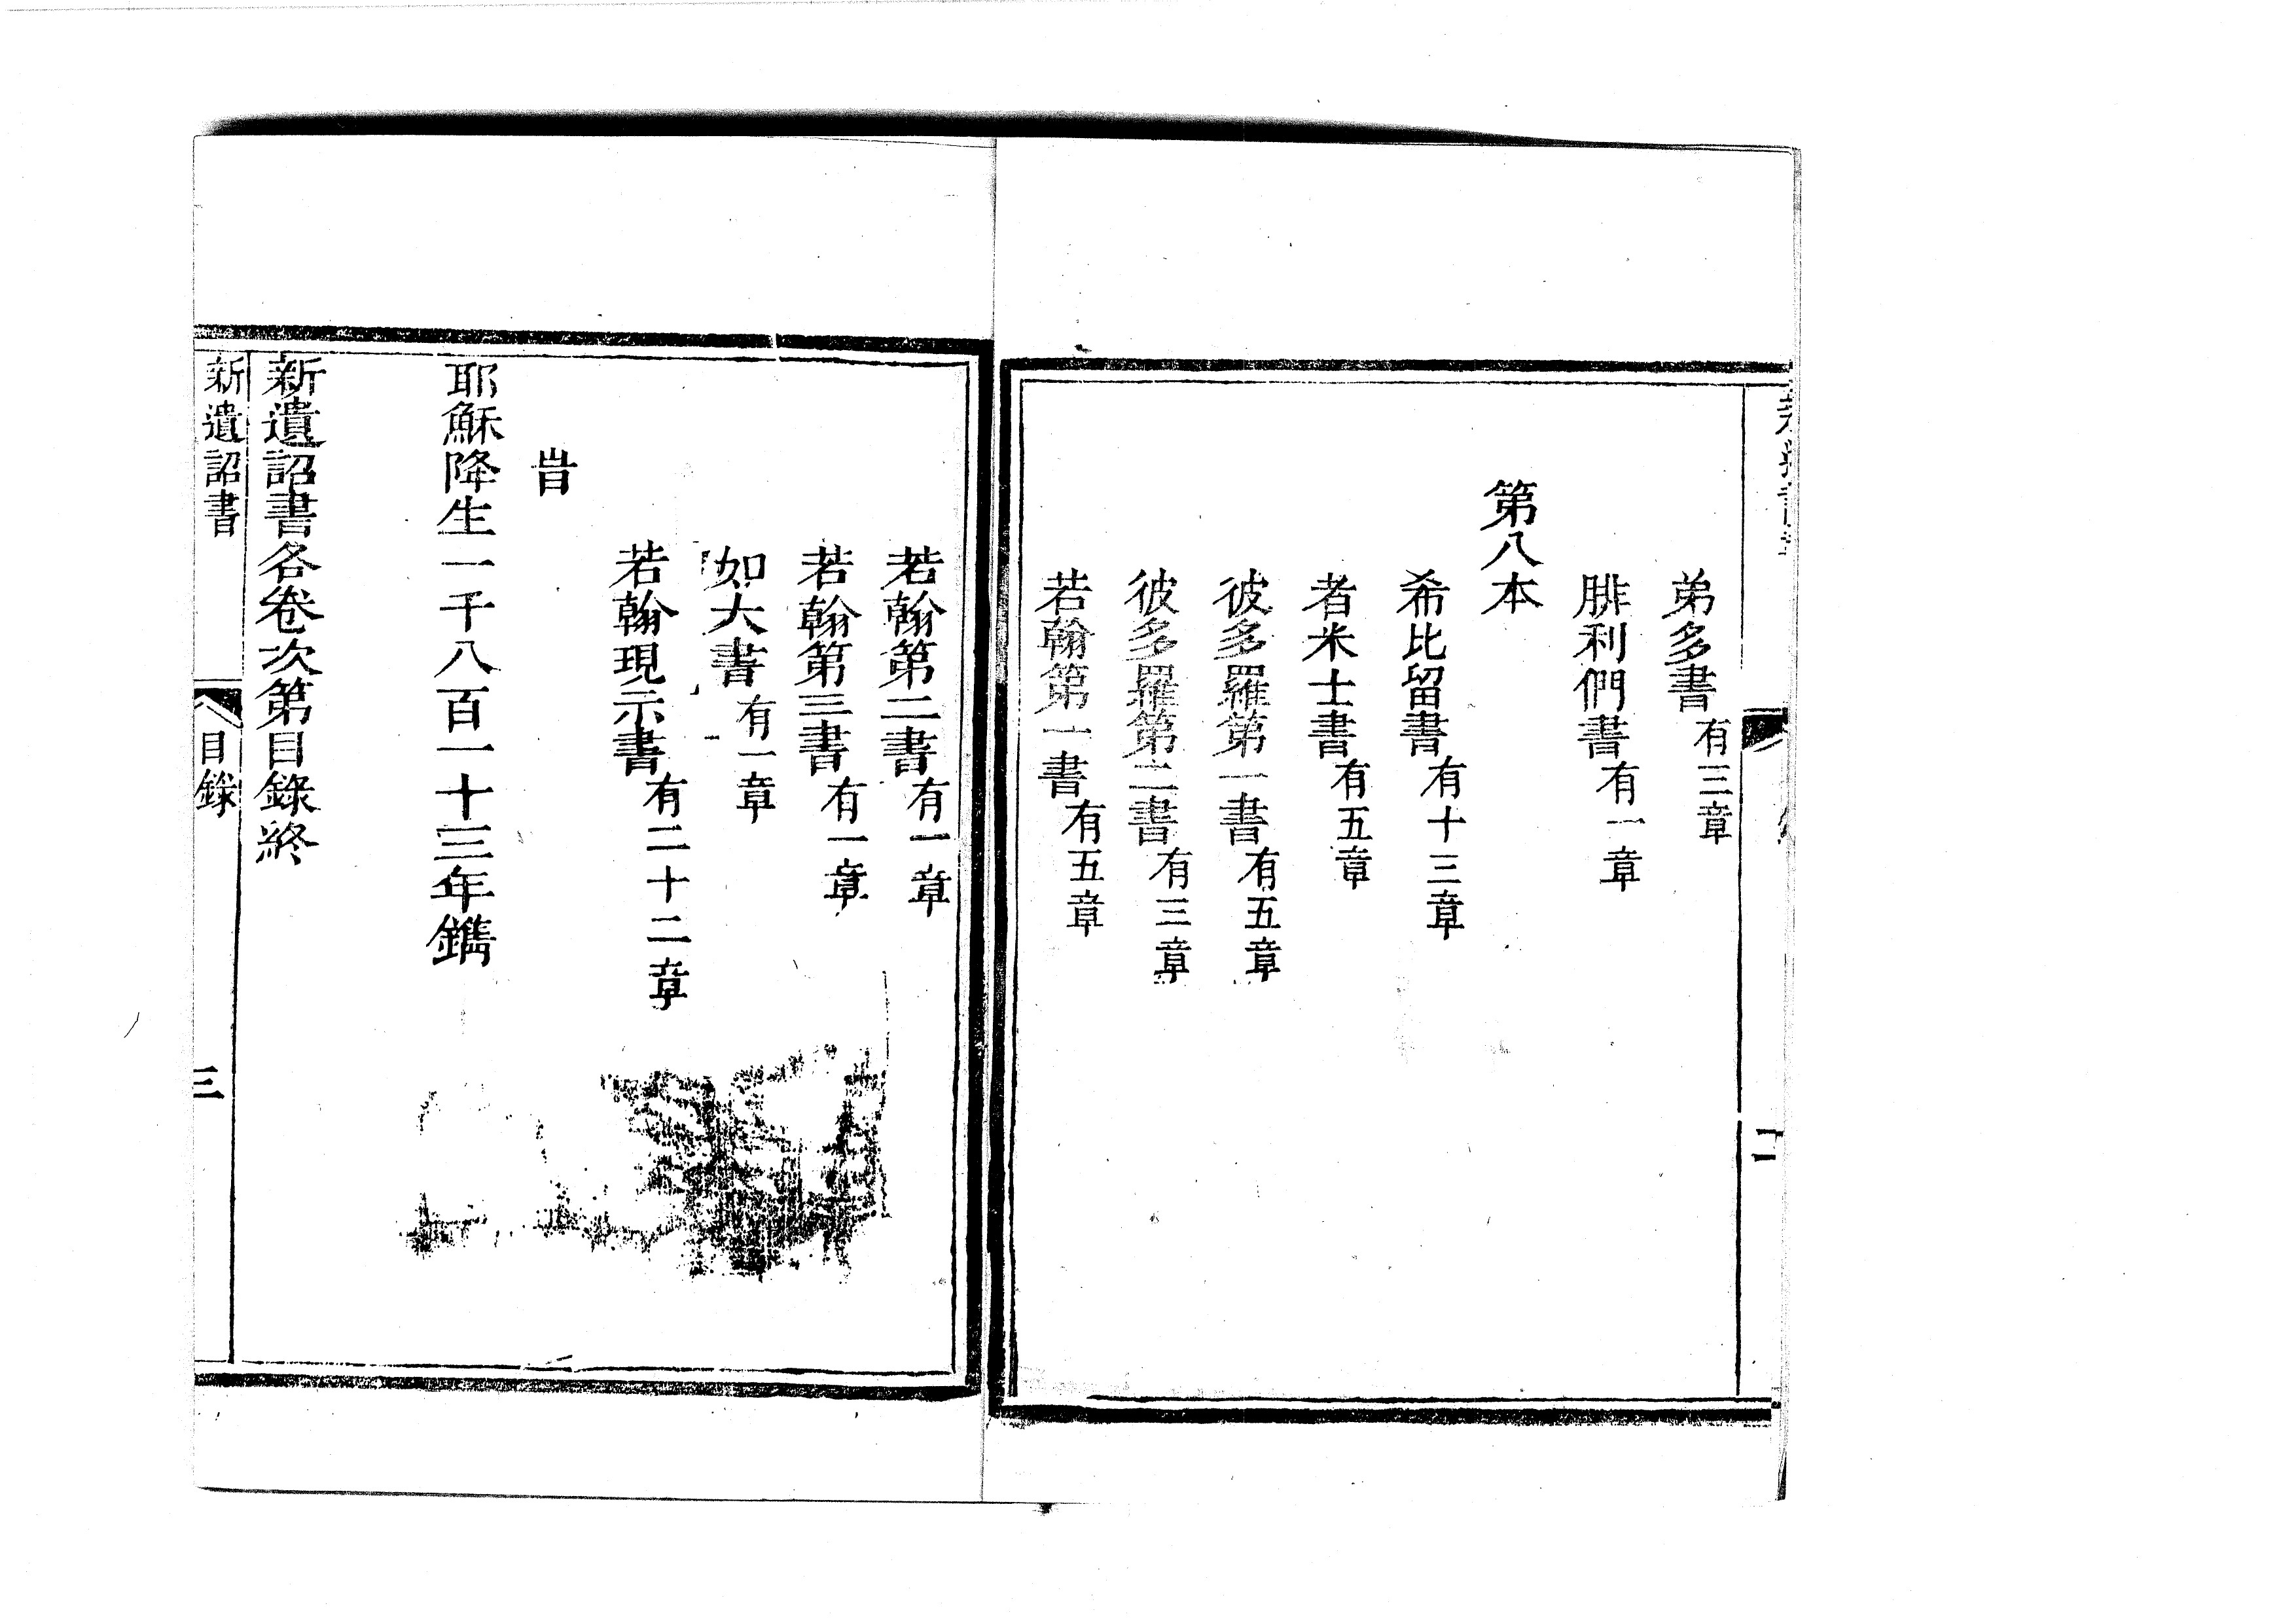 弟多書有三章
腓利們書有一章
第八本
希比留書有十三章
者米士書有五章
彼多羅第一書有五章
彼多羅第二書有三章
若翰第一書有五章
二
若翰第二書有一章
若翰第三書有一章
如大書有一章
若翰現示書有二十二章
旹
耶穌降生一千八百一十三年鐫
新遺詔書各卷次第目錄終
新遺詔書 目錄 三